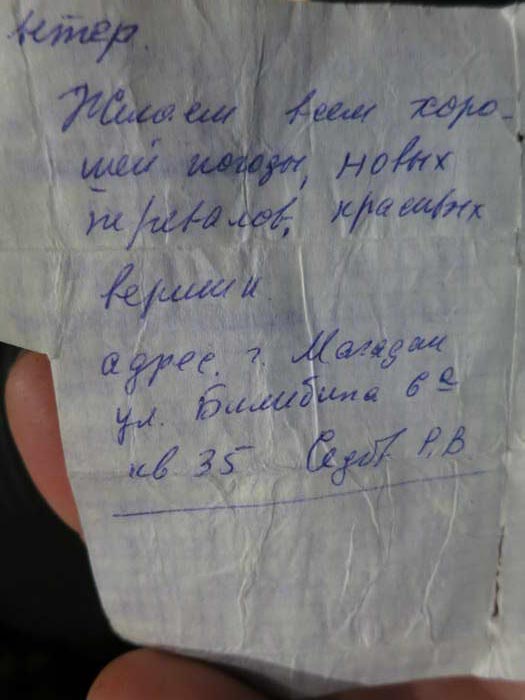 ветер.
Желаем всем хоро-
шей погоды, новых
перевалов, красивых
вершин.
адрес. г. Магадан
ул. Билибина 6а
кв 35 Седов Р.В